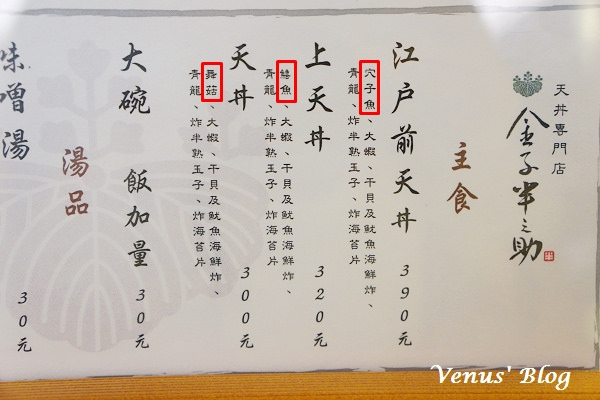 天丼専門店
金子半之助
主食
江戶前天丼 390元
穴子魚、大蝦、干貝及魷魚海鮮炸、
青龍、炸半熟玉子、炸海苔片
上天丼 320元
鱚魚、大蝦、干貝及魷魚海鮮炸、
青龍、炸半熟玉子、炸海苔片
天丼 300元
舞菇、大蝦、干貝及魷魚海鮮炸、
青龍、炸半熟玉子、炸海苔片
大碗 飯加量 30元
湯品
味噌湯 30元
Venus' Blog